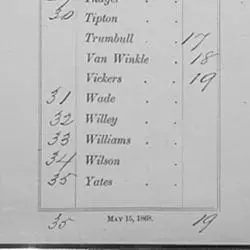 30 Tipton . .
Trumbull . . 17
Van Winkle . . 18
Vickers . . 19
31 Wade . .
32 Willey . .
33 Williams . .
34 Wilson . .
35 Yates . .
35 MAY 15, 1868. 19